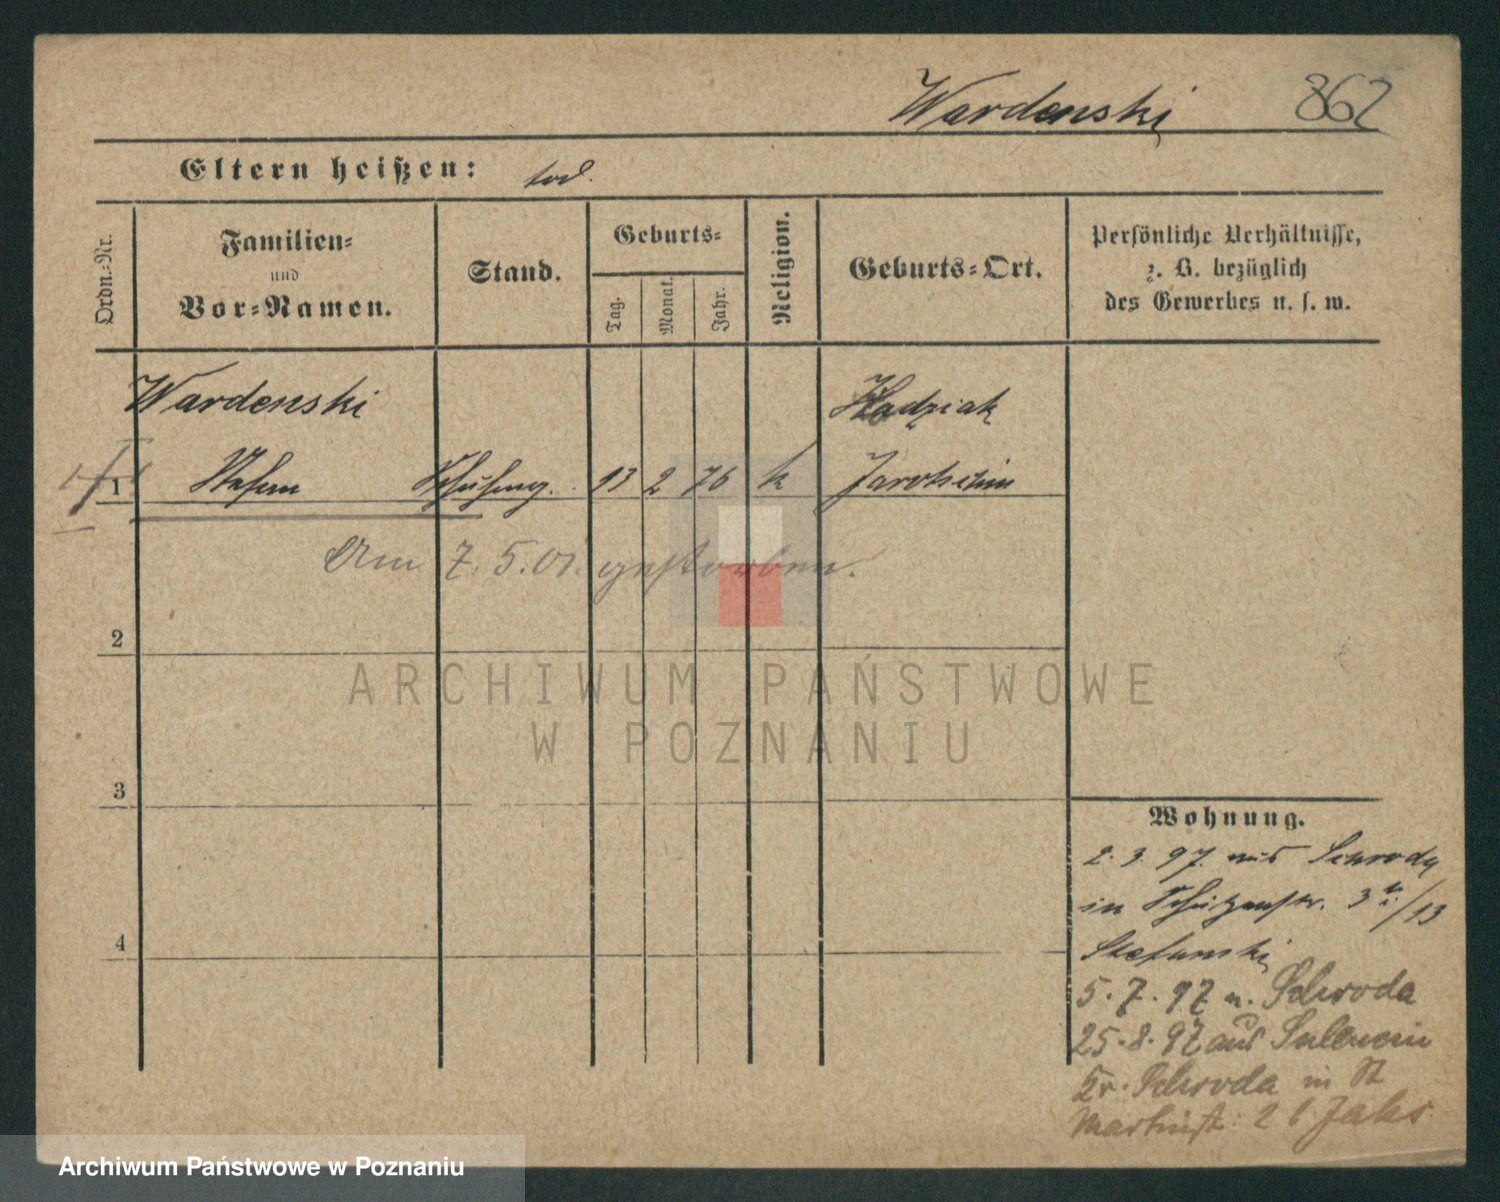 Wardenski 862
Eltern heißen: tod.
Ordn.=Nr.
Familien=
und
Vor=Namen.
Stand.
Geburts=
Tag.
Monat.
Jahr.
Religion.
Geburts=Ort.
Persönliche Verhältnisse,
z. B. bezüglich
des Gewerbes u. s. w.
Wardenski
1 Stefan 13 2 76 k
Hadziak
Jarotschin
Am 7. 5. 01. gestorben.
2
3
4
Wohnung.
2. 3. 97. aus Schroda
in Schützenstr. 3 /13
Stefanski
5. 7. 97 n. Schroda
25. 8. 97 aus Sulencin
Kr. Schroda in St
Martinstr. 26
ARCHIWUM PAŃSTWOWE
W POZNANIU
Archiwum Państwowe w Poznaniu